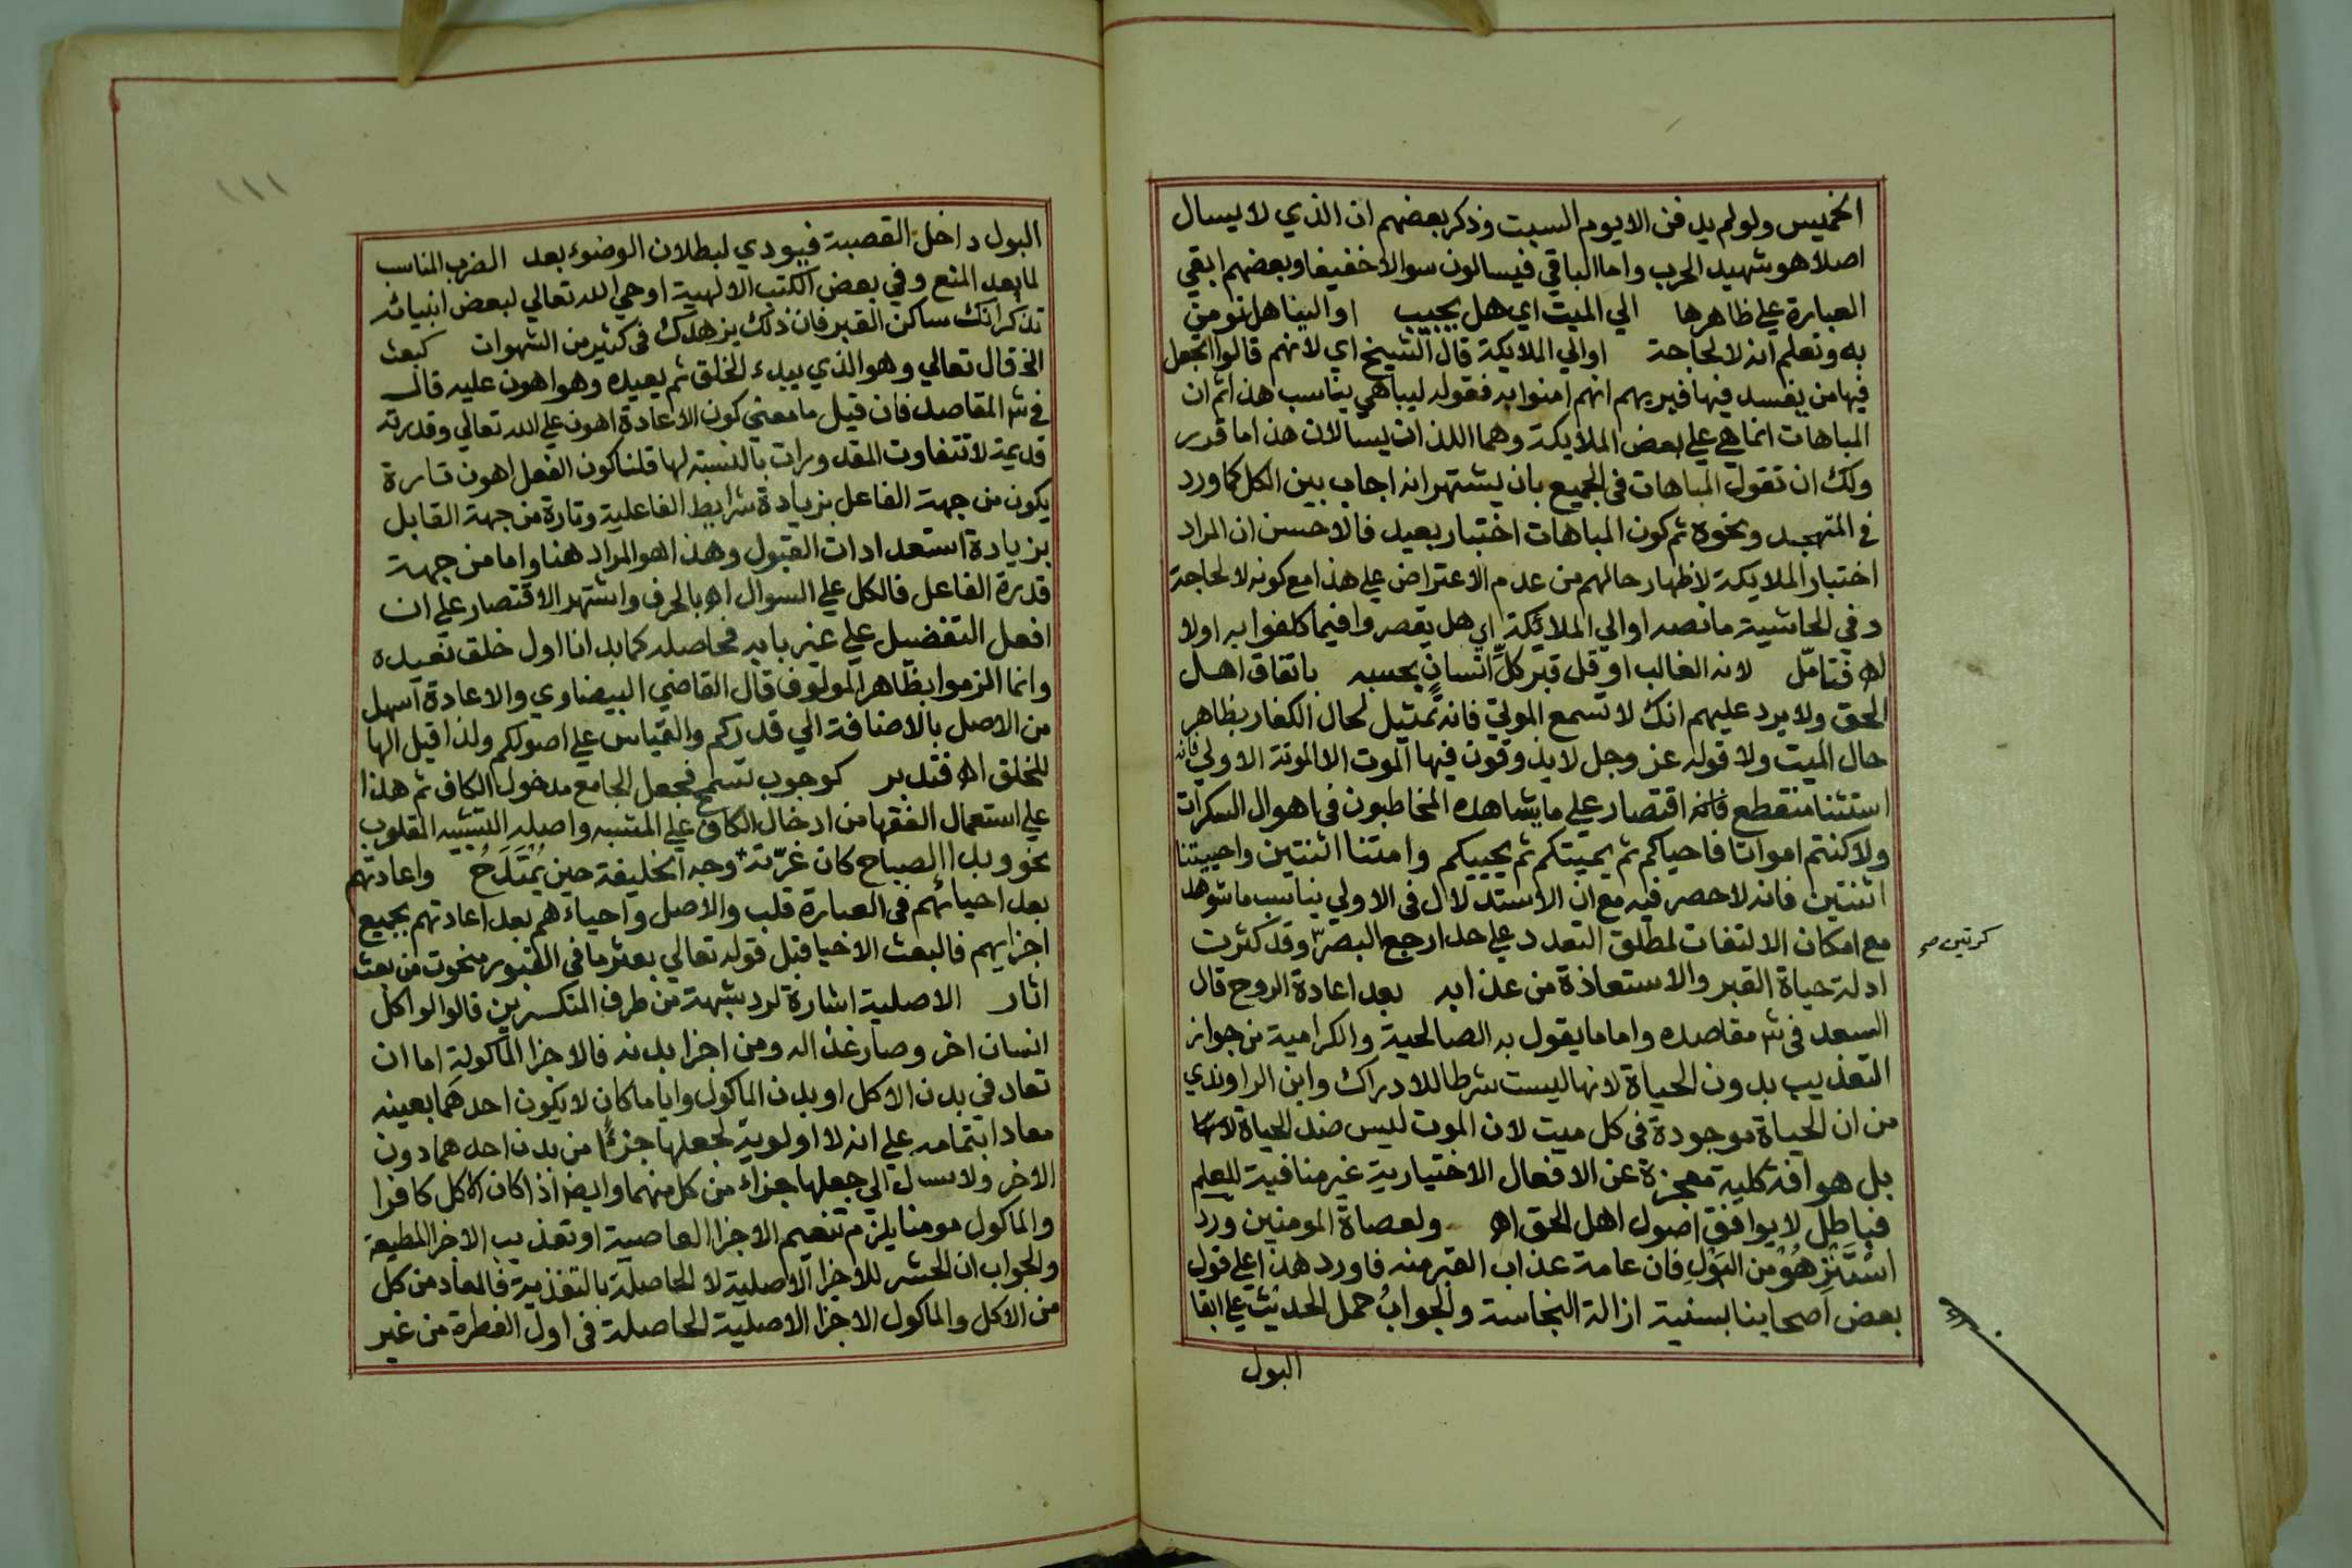 الخميس ولو لم يدفن الا يوم السبت وذكر بعضهم ان الذي لا يسال
اصلا هو شهيد الحرب واما الباقي فيسالون سوالا خفيفا وبعضهم ابقي
العبارة علي ظاهرها الي الميت اي هل يجيب او الينا هل نومن
به ونعلم انه لا لحاجة او الي الملايكة قال الشيخ اي لانهم قالوا اتجعل
فيها من يفسد فيها فيريهم انهم امنوا به فقوله ليباهي يناسب هذا ثم ان
المباهات انما هي علي بعض الملايكة وهما اللذان يسالان هذا ما قدر
ولك ان تقول المباهات في الجميع بان يشتهر انه اجاب بين الكل كما ورد
في المتهجد ونحوه ثم كون المباهات اختبار بعيد فالاحسن ان المراد
اختبار الملايكة لاظهار حالهم من عدم الاعتراض علي هذا مع كونه لا لحاجة
وفي الحاشية ما نصه او الي الملائكة اي هل يقصروا فيما كلفوا به اولا
اه فتامّل لانه الغالب او قل قبر كلِّ انسانٍ بحسبه باتفاق اهل
الحق ولا يرد عليهم انك لا تسمع الموتي فانه تمثيل لحال الكفار بظاهر
حال الميت ولا قوله عز وجل لا يذوقون فيها الموت الا الموتة الاولي فانه
استثنا منقطع فانه اقتصار علي ما يشاهده المخاطبون في اهوال السكرات
ولا كنتم امواتا فاحياكم ثم يميتكم ثم يحييكم وامتنا اثنتين واحييتنا
اثنتين فانه لا حصر فيه مع ان الاستدلال في الاولي يناسب ما شوهد
مع امكان الالتفات لمطلق التعدد علي حد ارجع البصر وقد كثرت
كرتين صح
ادلة حياة القبر والاستعاذة من عذابه بعد اعادة الروح قال
السعد في ش مقاصده واما ما يقول به الصالحية والكرامية من جواز
التعذيب بدون الحياة لانها ليست شرطا للادراك وابن الراوندي
من ان الحياة موجودة في كل ميت لان الموت ليس ضد الحياة
بل هو افة كلية معجزة عن الافعال الاختيارية غير منافية للعلم
فباطل لا يوافق اصول اهل الحق اه ولعصاة المومنين ورد
اسْتَنْزِهُوْ من البَوْلِ فان عامة عذاب القبر منه فاورد هذا علي قول
بعض اصحابنا بسنية ازالة النجاسة والجوابُ حمل الحديث علي ابقا
البول
١١١
البول داخل القصبة فيودي لبطلان الوضوء بعد الضرب المناسب
لما بعد المنع وفي بعض الكتب الالهية اوحي الله تعالي لبعض انبيائه
تذكر انك ساكن القبر فان ذلك يزهدك في كثير من الشهوات كبعث
الخ قال تعالي وهو الذي يبدء الخلق ثم يعيده وهو اهون عليه قال
في ش المقاصد فان قيل ما معني كون الاعادة اهون علي الله تعالي وقدرته
قديمة لا تتفاوت المقدورات بالنسبة لها قلنا كون الفعل اهون تارة
يكون من جهة الفاعل بزيادة شرايط الفاعلية وتارة من جهة القابل
بزيادة استعدادات القبول وهذا هو المراد هنا واما من جهة
قدرة الفاعل فالكل علي السوال اه بالحرف واشتهر الاقتصار علي ان
افعل التفضيل علي غير بابه فحاصله كما بدانا اول خلق نعيده
وانما الزموا بظاهر المولوف قال القاضي البيضاوي والاعادة اسهل
من الاصل بالاضافة الي قدركم والقياس علي اصولكم ولذا قيل الها
للخلق اه فتدبر كوجوب تسمح فجعل الجامع مدخول الكاف ثم هذا
علي استعمال الفقها من ادخال الكاف علي المشبه واصله التشبيه المقلوب
نحو وبدا الصباح كان غرّته وجه الخليفة حين يُمْتَدَحُ واعادتهم
بعد احيائهم في العبارة قلب والاصل واحياءهم بعد اعادتهم بجميع
اجزايهم فالبعث الاحيا قبل قوله تعالي بعثر ما في القبور منحوت من بعث
اثار الاصلية اشارة لرد شبهة من طرف المنكرين قالوا لو اكل
انسان اخر وصار غذا له ومن اجزا بدنه فالاجزا الماكولة اما ان
تعاد في بدن الاكل او بدن الماكول وايا ما كان لا يكون احدهما بعينه
معادا بتمامه علي انه لا اولوية لجعلها جزءًا من بدن احدهما دون
الاخر ولا سبيل الي جعلها جزاء من كل منهما وايضا اذا كان الاكل كافرا
والماكول مومنا يلزم تنعيم الاجزا العاصية او تعذيب الاجزا المطيعة
والجواب ان الحشر للاجزا الاصلية لا الحاصلة بالتغذية فالمعاد من كل
من الاكل والماكول الاجزا الاصلية الحاصلة في اول الفطرة من غير